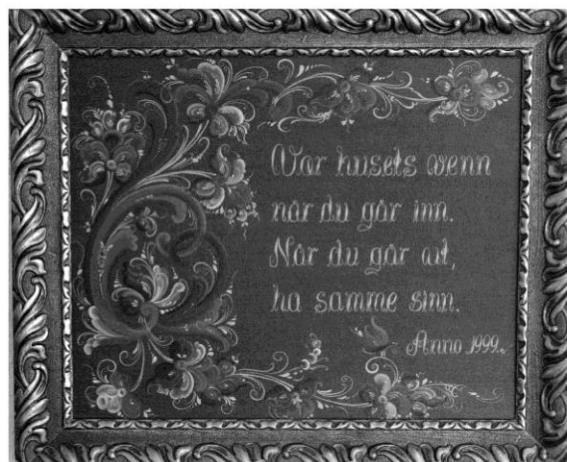 Wær husets wenn
når du går inn.
Når du går ut,
ha samme sinn.
Anno 1999.